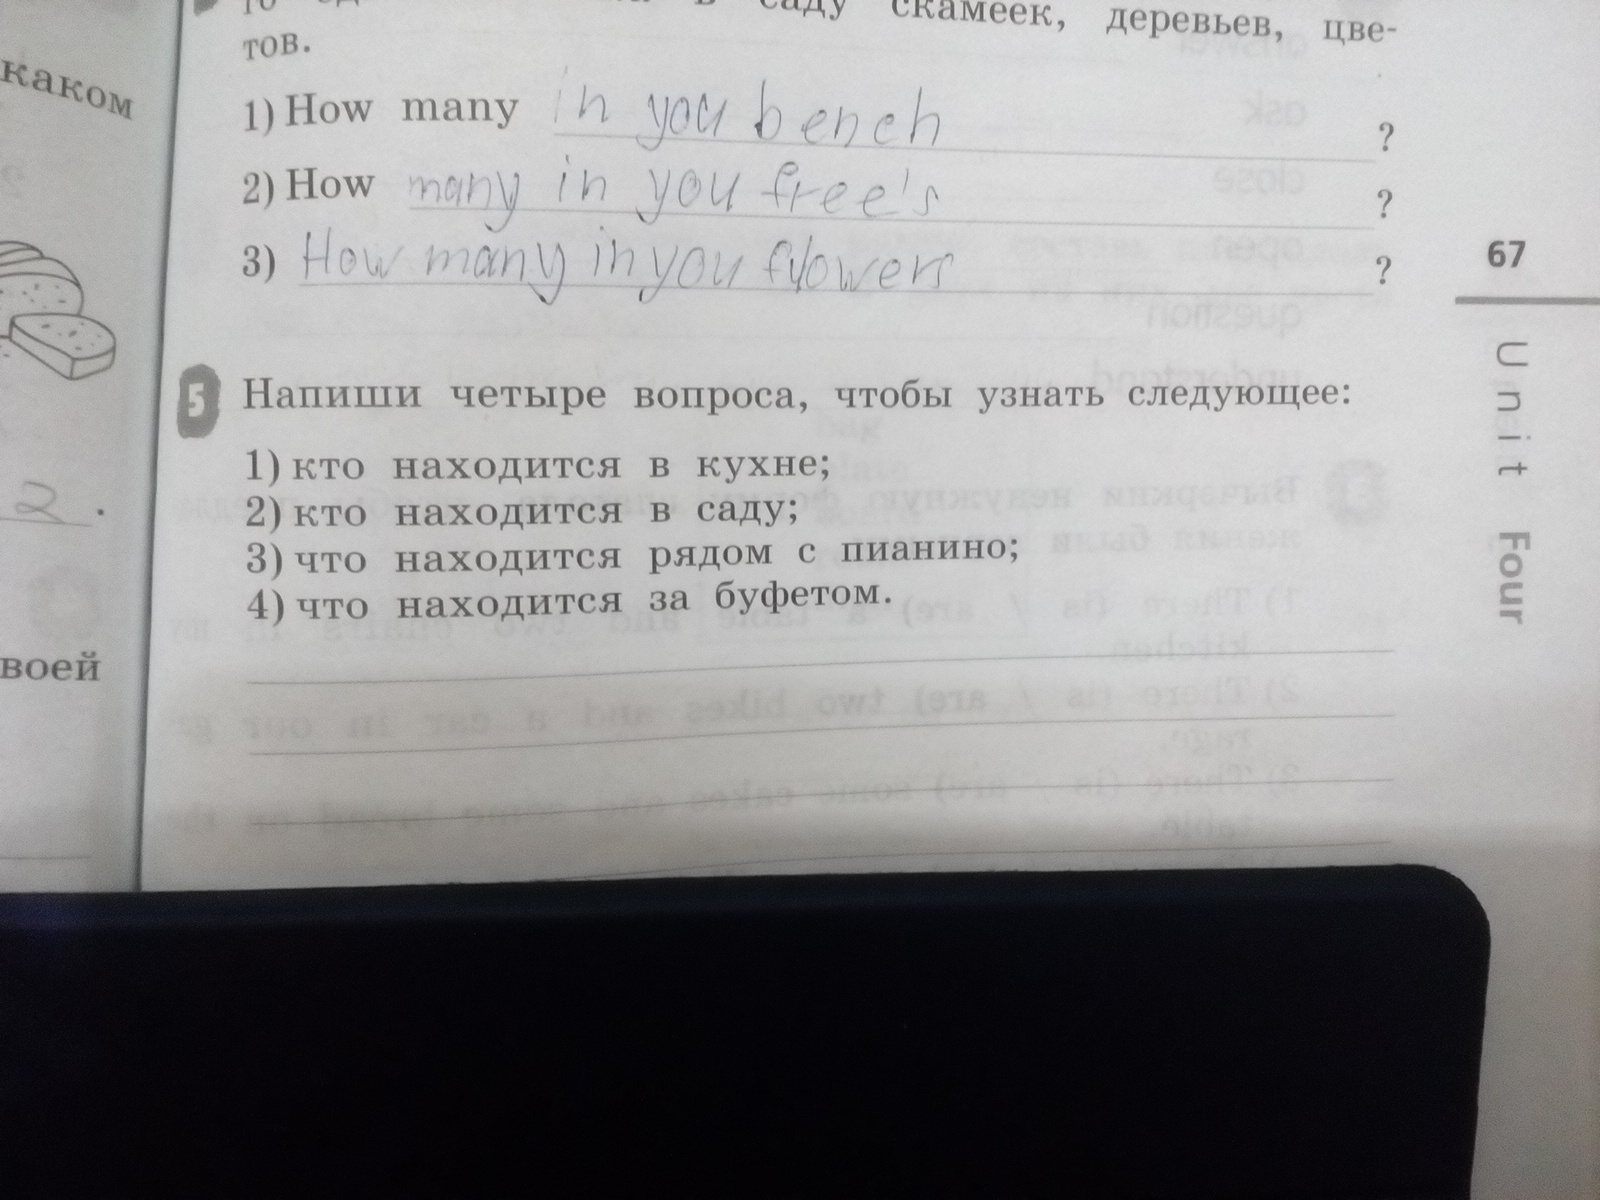 в саду скамеек, деревьев, цве-
тов.
каком
1) How many in you bench ?
2) How many in you free's ?
3) How many in you flowers ?
67
Unit Four
5 Напиши четыре вопроса, чтобы узнать следующее:
1) кто находится в кухне;
2) кто находится в саду;
3) что находится рядом с пианино;
4) что находится за буфетом.
2.
воей